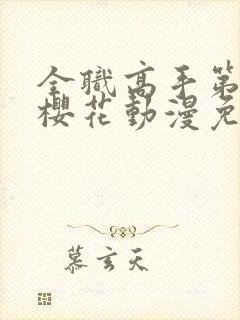 全職高手第
櫻花動漫免
慕玄天